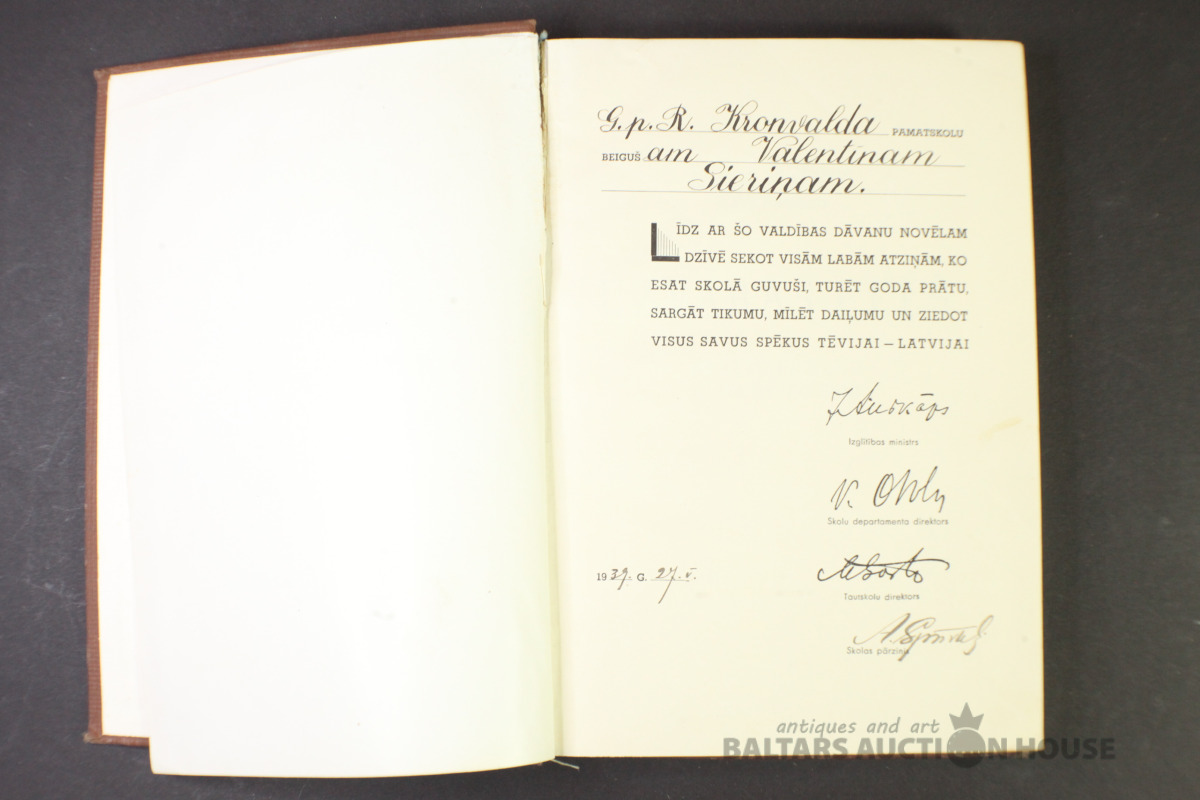 G.p. R. Kronvalda PAMATSKOLU
BEIGUŠ am Valentīnam
Sieriņam.
LĪDZ AR ŠO VALDĪBAS DĀVANU NOVĒLAM
DZĪVĒ SEKOT VISĀM LABĀM ATZIŅĀM, KO
ESAT SKOLĀ GUVUŠI, TURĒT GODA PRĀTU,
SARGĀT TIKUMU, MĪLĒT DAIĻUMU UN ZIEDOT
VISUS SAVUS SPĒKUS TĒVIJAI — LATVIJAI
J. Auškāps
Izglītības ministrs
Skolu departamenta direktors
1939. G. 27. V.
Tautskolu direktors
Skolas pārzinis
antiques and art
BALTARS AUCTION HOUSE